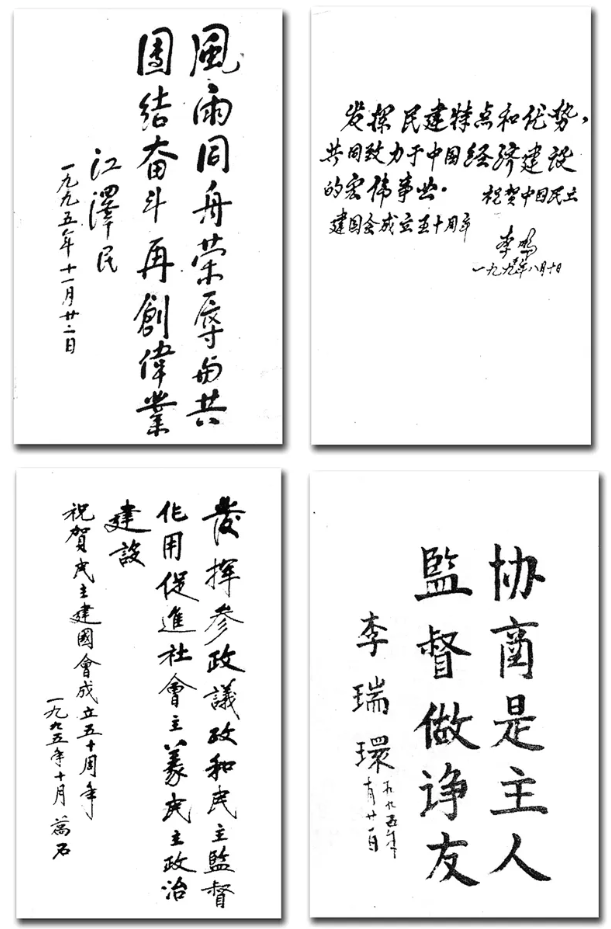 風雨同舟荣辱与共
團结奋斗再創偉業
江澤民
一九九五年十一月廿二日
发挥民建特点和优势，
共同致力于中国经济建设
的宏伟事业。 祝贺中国民主
建国会成立五十周年
李鹏
一九九五年八月十日
發揮参政議政和民主監督
作用促進社會主義民主政治
建設
祝賀民主建國會成立五十周年
一九九五年十月 喬石
协商是主人
監督做诤友
李瑞環
一九九五年